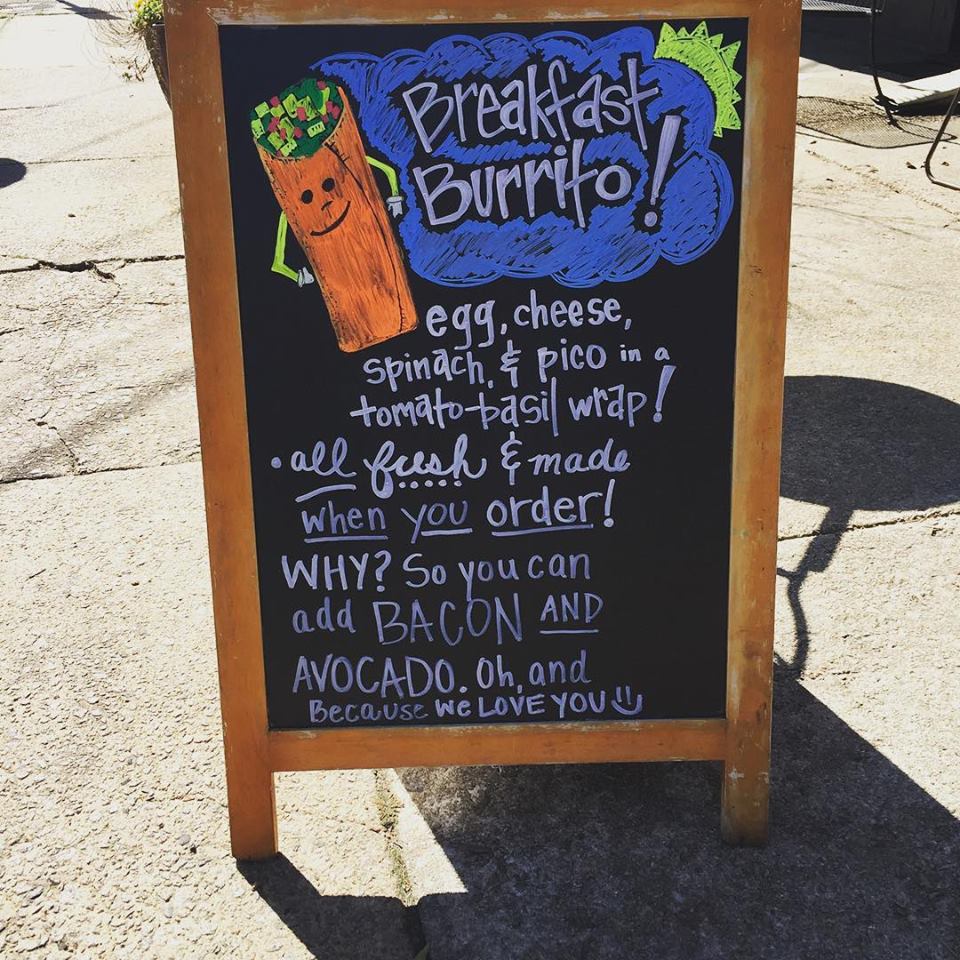 Breakfast
Burrito!
egg, cheese,
spinach, & pico in a
tomato-basil wrap!
• all fresh & made
when you order!
WHY? So you can
add BACON AND
AVOCADO. Oh, and
Because we LOVE YOU